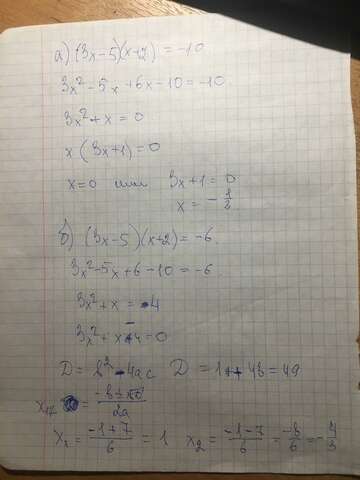 а) (3x-5)(x+2) = -10
3x²-5x+6x-10=-10
3x²+x=0
x(3x+1)=0
x=0 или 3x+1=0
x=-1/2
б) (3x-5)(x+2)=-6
3x²-5x+6-10=-6
3x²+x=4
3x²+x-4=0
D=b²-4ac D=1+48=49
=(-b±√D)/2a
x₁=(-1+7)/6=1 x₂=(-1-7)/6=-8/6=-4/3